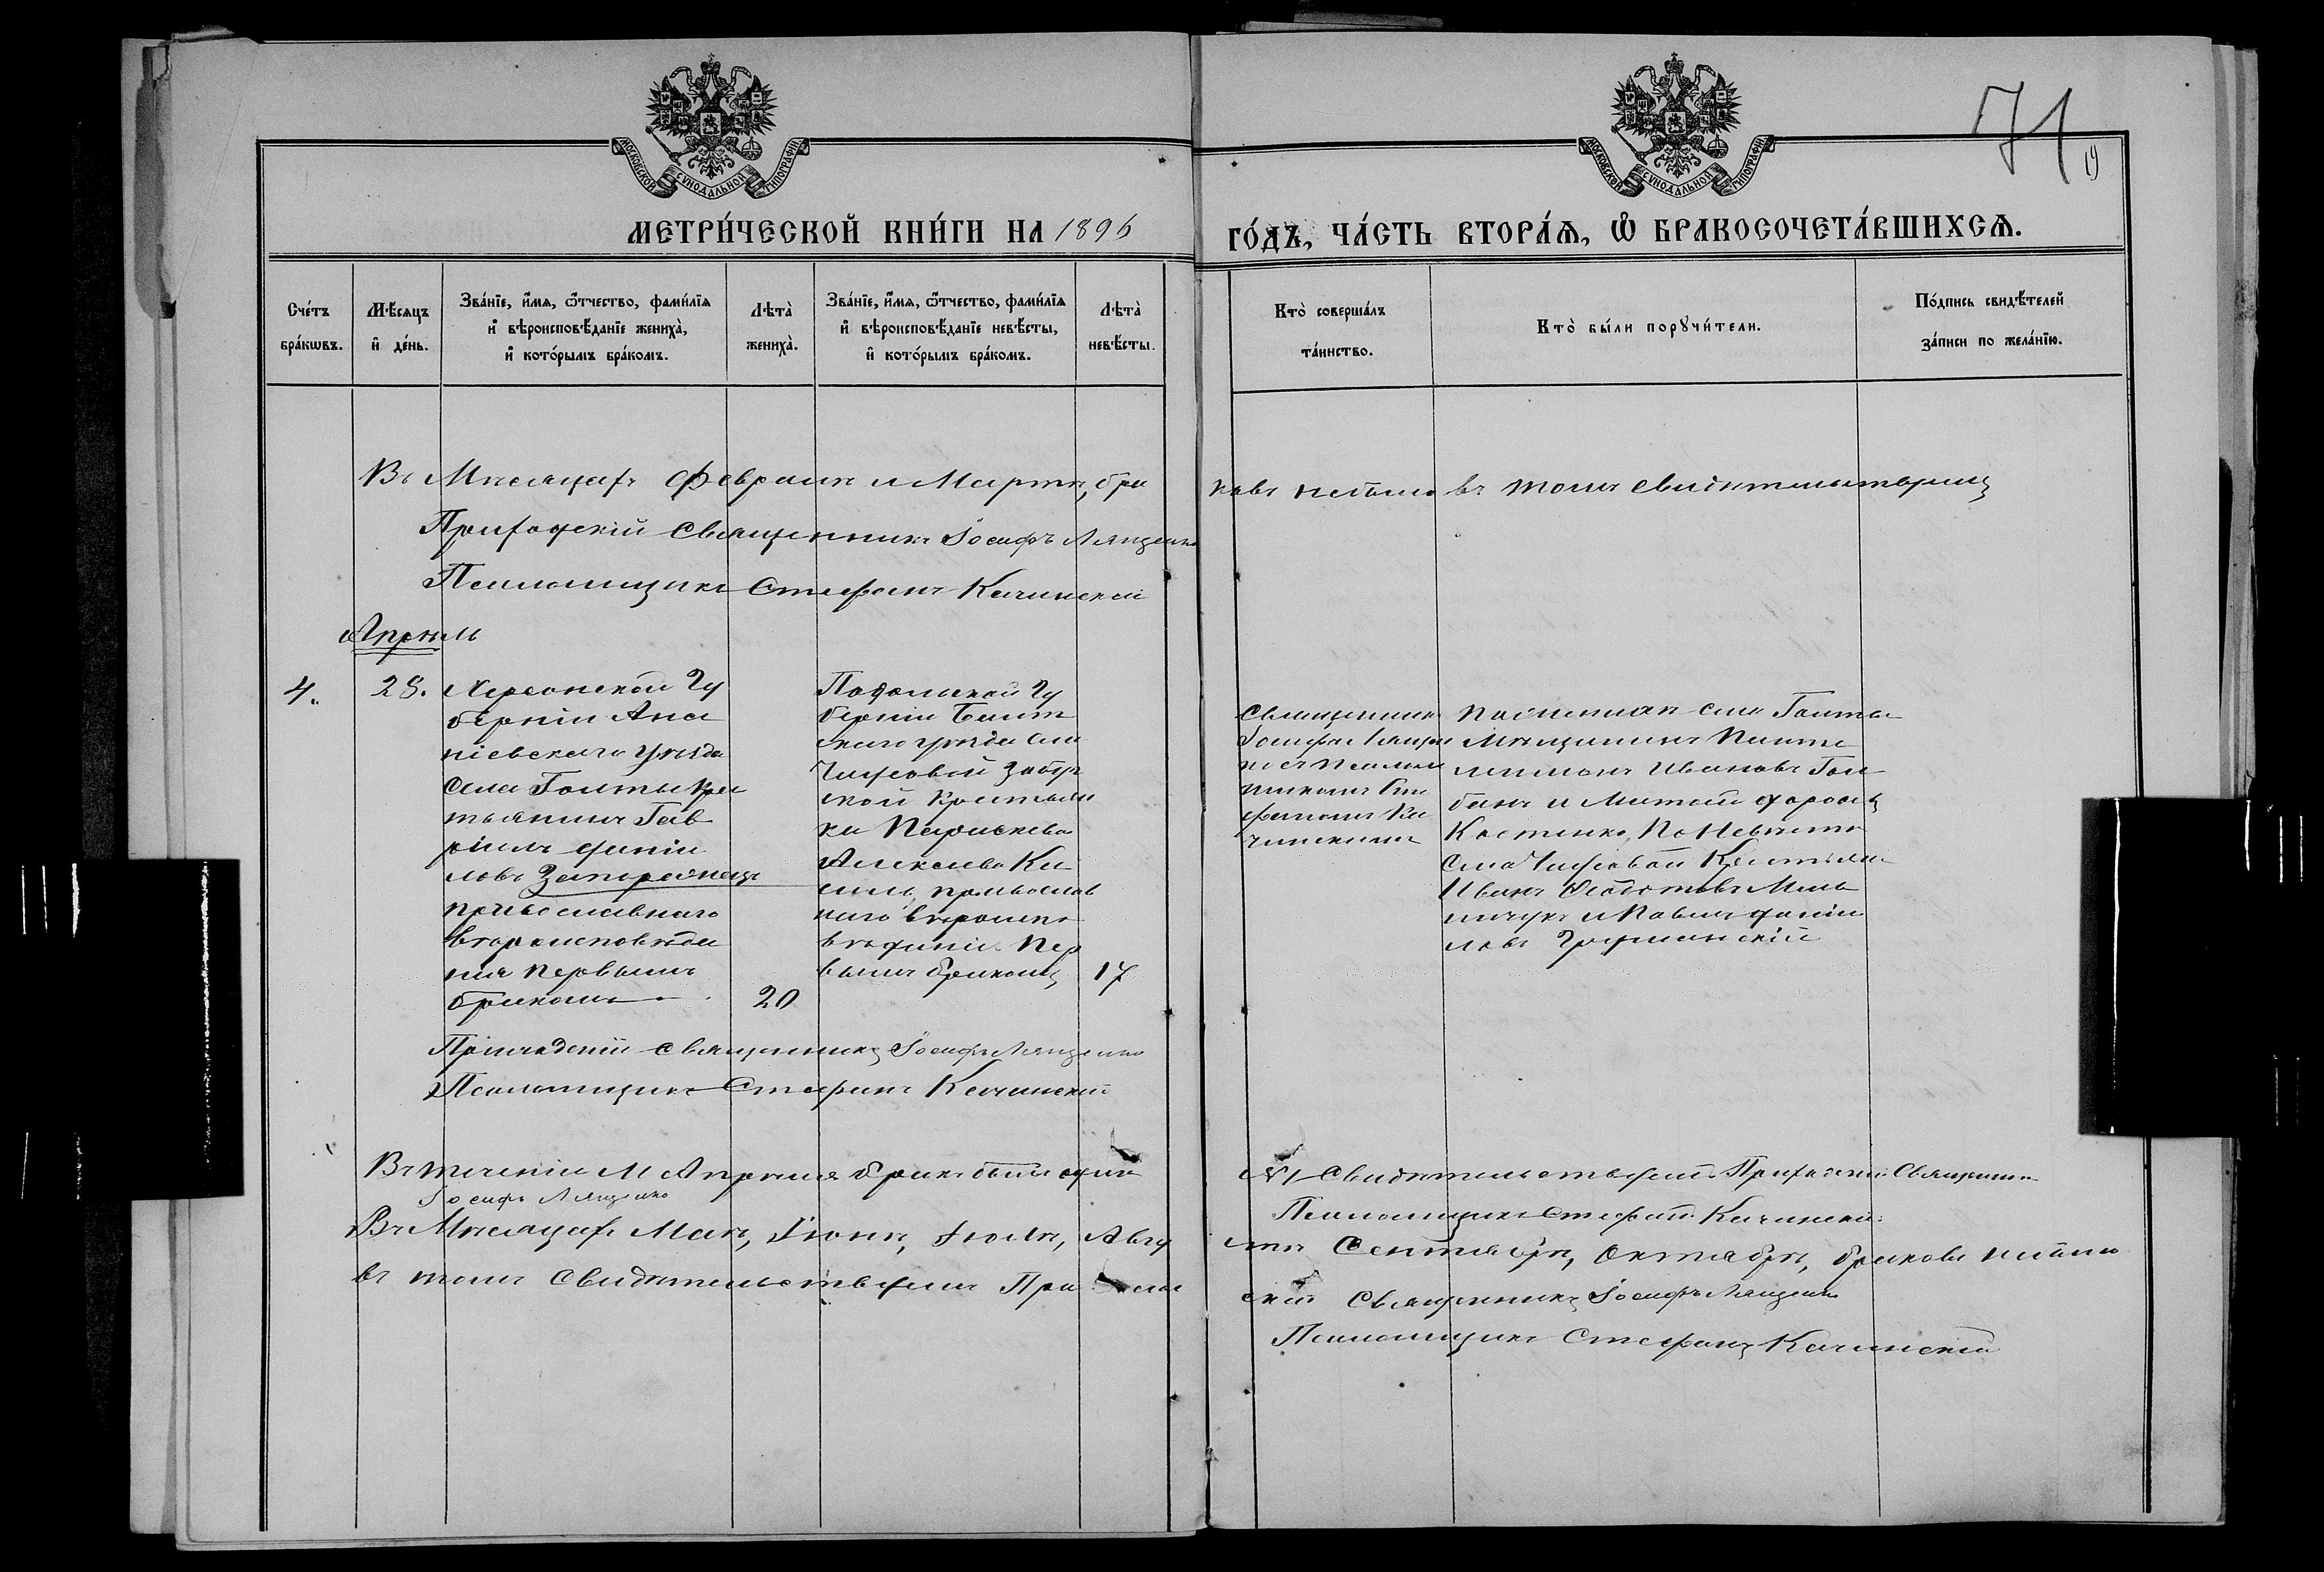 71
19
МОСКОВСКОЙ СѴНОДАЛЬНОЙ ТИПОГРАФІИ
МОСКОВСКОЙ СѴНОДАЛЬНОЙ ТИПОГРАФІИ
МЕТРИ́ЧЕСКОЙ КНИ́ГИ НА 1896 ГО́ДЪ, ЧА́СТЬ ВТОРА́Ѧ, Ѡ҆ БРАКОСОЧЕТА́ВШИХСѦ.
Сче́тъ бра́кѡвъ.
Мѣ́сѧцъ и҆ де́нь.
Зва́нїе, и҆́мѧ, ѻ҆́тчество, фами́лїѧ
и҆ вѣроисповѣ́данїе жениха̀,
и҆ кото́рымъ бра́комъ.
Лѣта̀ жениха̀.
Зва́нїе, и҆́мѧ, ѻ҆́тчество, фами́лїѧ
и҆ вѣроисповѣ́данїе невѣ́сты,
и҆ кото́рымъ бра́комъ.
Лѣта̀ невѣ́сты.
Кто̀ соверша́лъ та́инство.
Кто̀ бы́ли порꙋчи́тели.
По́дпись свидѣ́телей
за́писи по жела́нїю.
Въ Мѣсяцахъ Февралѣ и Мартѣ, бра
ковъ небыло въ томъ свидѣтельствуемъ
Приходскій Священникъ Іосифъ Лященко
Псаломщикъ Стефанъ Качинскій
Апрѣль
4.
28.
Херсонской Гу
берніи Ана
ніевскаго уѣзда
села Голты Крес
тьянинъ Гав
ріилъ Данiи
ловъ Запорожецъ
православнаго
вѣроисповѣда
нія первымъ
бракомъ
20
Подольской Гу
берніи Балт
скаго уѣзда сла
Чаусовой
ской Крестьян
ка Параскева
Алексѣева Ки
православ
наго вѣроиспо
вѣданія. Пер
вымъ бракомъ
17
Священникъ
Іосифъ Лящен
ко съ Псалом
щикомъ Сте
фаномъ Ка
чинскимъ
По женихѣ села Голты
Мѣщанинъ Панте
леимонъ Ивановъ Гол
банъ и
Костенко, По Невѣстѣ
села Чаусовой Крестьяне
Иванъ Мель
ничукъ и Павелъ Даніи
ловъ
Приходскій Священникъ Іосифъ Лященко
Псаломщикъ Стефанъ Качинскій
Въ теченіи М Апрѣля бракъ былъ одинъ
№1 Свидѣтельствуемъ Приходскій Священникъ
Іосифъ Лященко
Псаломщикъ Стефанъ Качинскій
Въ Мѣсяцахъ Маѣ, Іюнѣ, Іюлѣ, Авгу
стѣ Сентябрѣ, Октябрѣ, браковъ небыло
въ томъ Свидѣтельствуемъ При
скій Священникъ Іосифъ Лященко
Псаломщикъ Стефанъ Качинскій